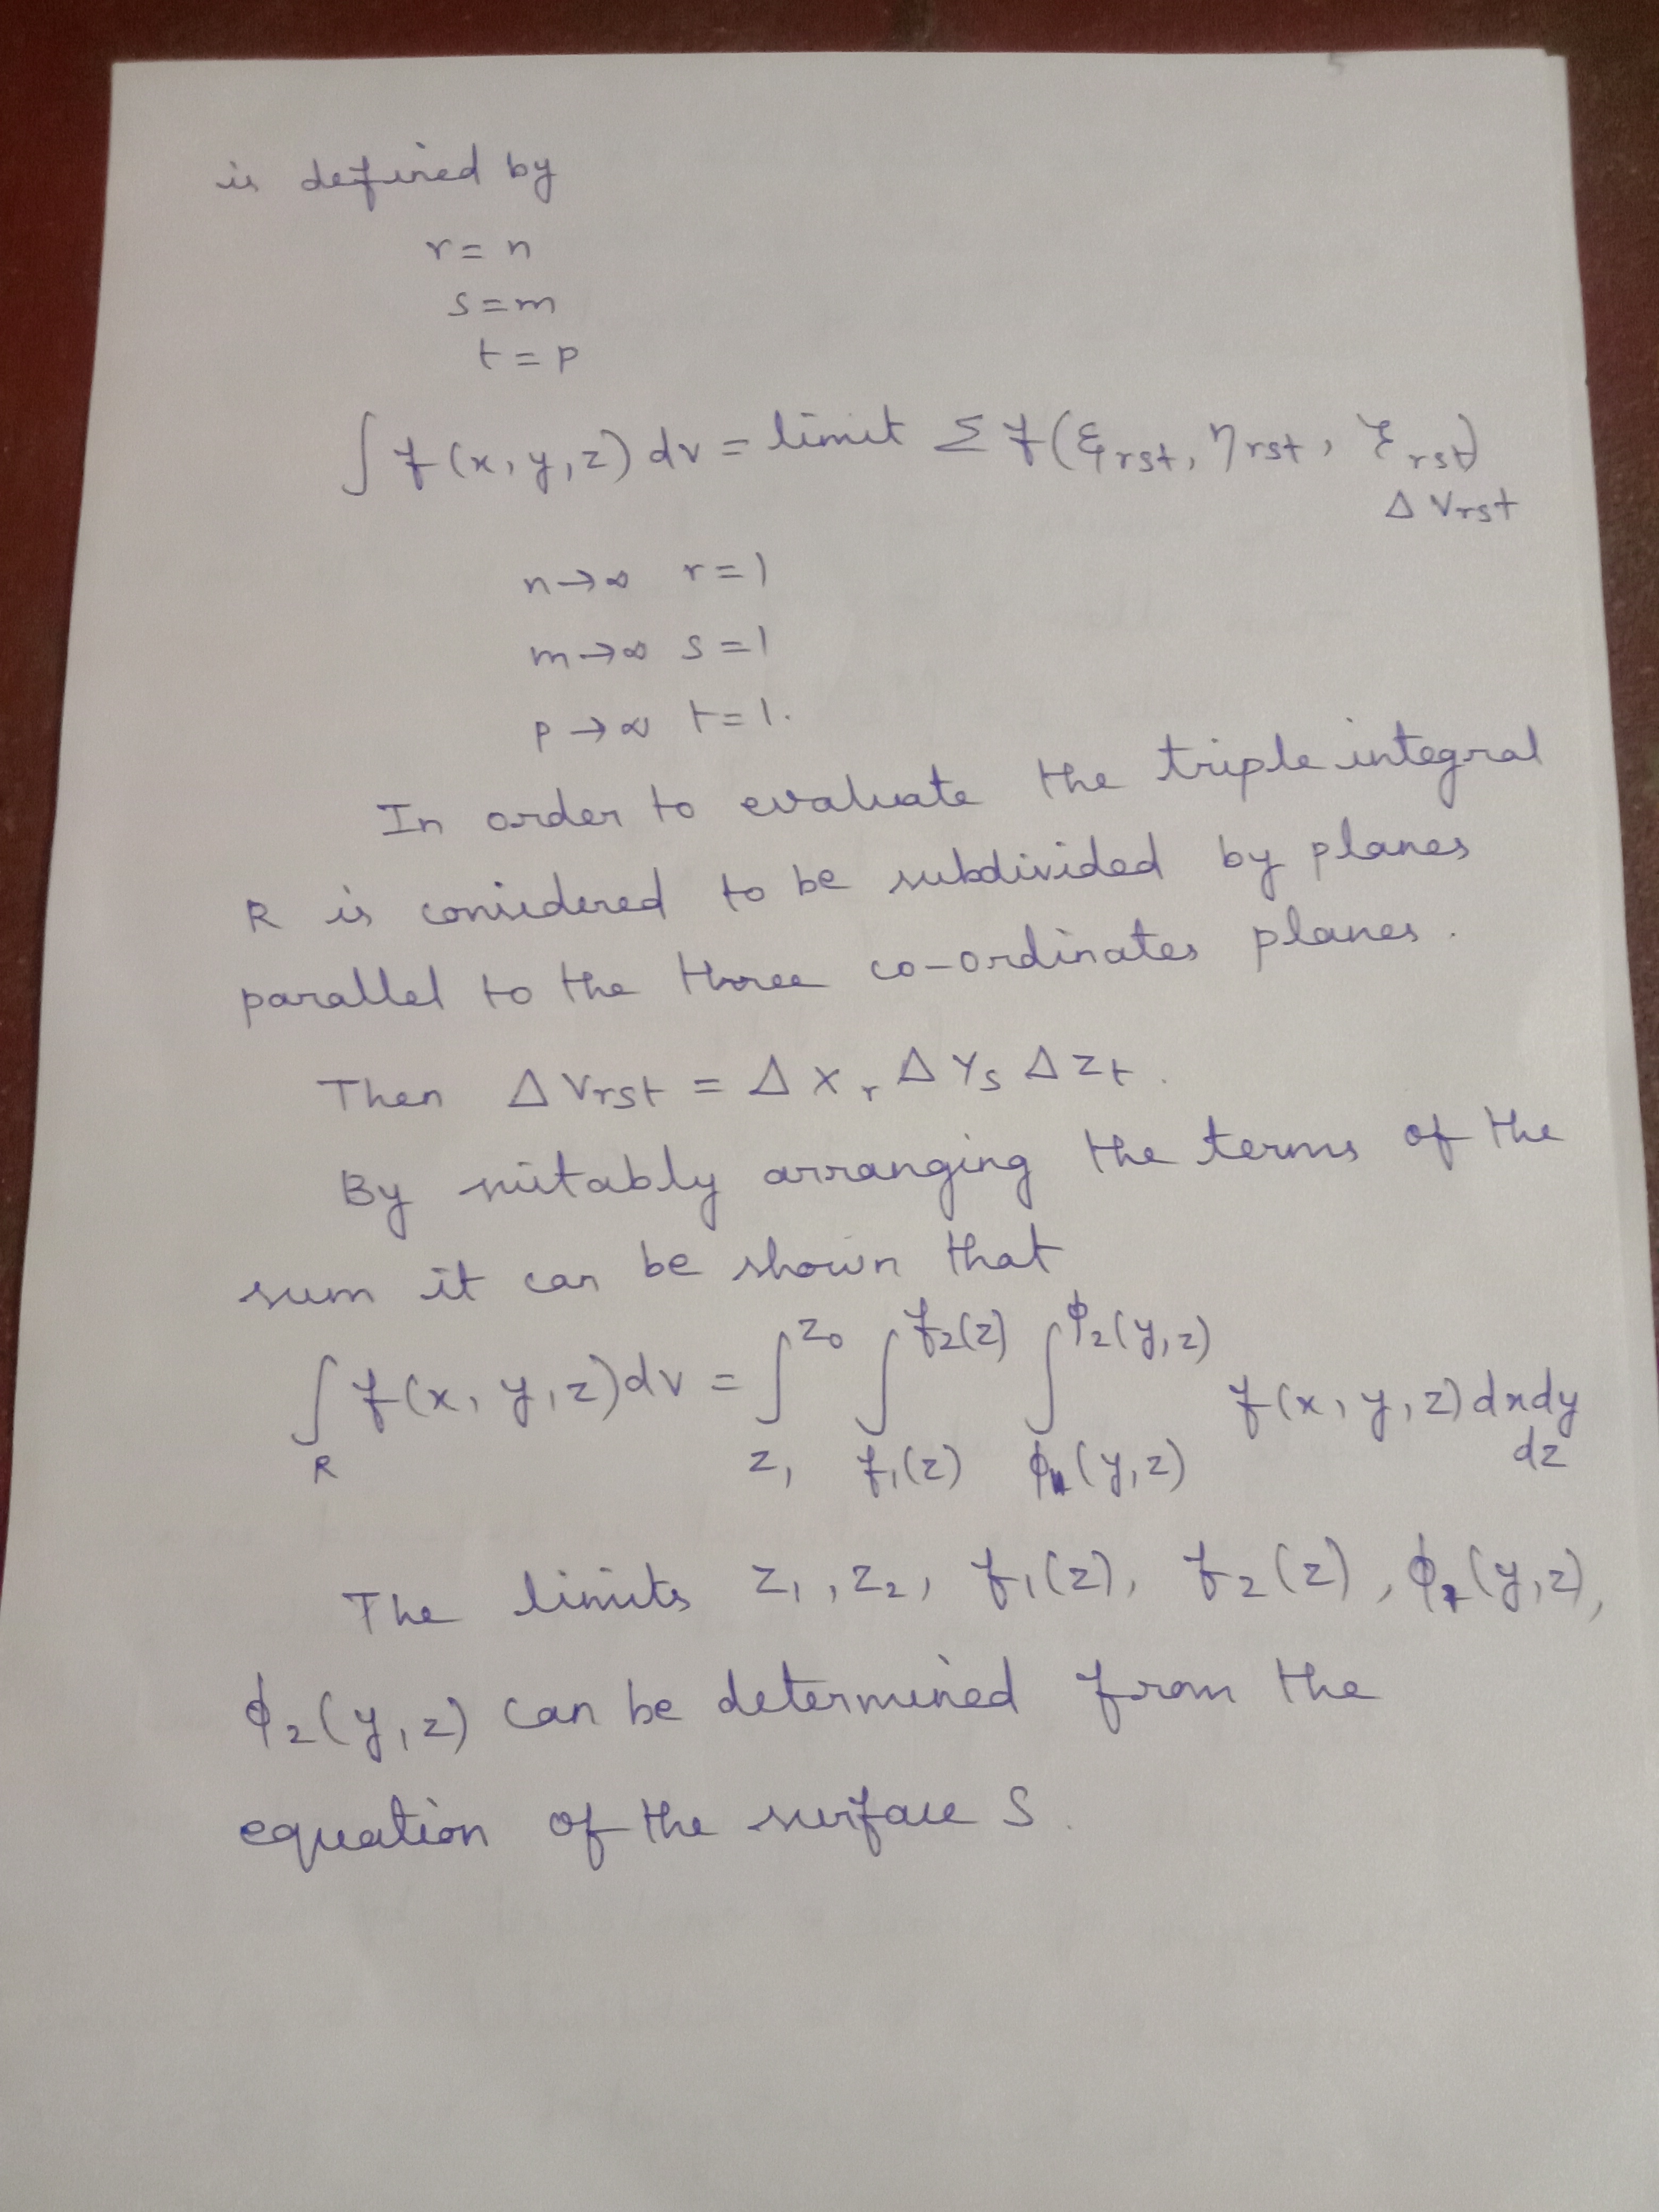 is defined by
r = n
s = m
t = p
∫ f(x, y, z) dv = limit Σ f(ξrst, ηrst, ζrst)
Δ Vrst
n→∞ r=1
m→∞ s=1
p→∞ t=1.
In order to evaluate the triple integral
R is considered to be subdivided by planes
parallel to the three co-ordinates planes.
Then Δ Vrst = Δ xr Δ ys Δ zt.
By suitably arranging the terms of the
sum it can be shown that
z0 f2(z) ϕ2(y, z)
∫ f(x, y, z) dv = ∫ ∫ ∫ f(x, y, z) dx dy
R z1 f1(z) ϕ1(y, z) dz
The limits z1, z2, f1(z), f2(z), ϕ1(y, z),
ϕ2(y, z) can be determined from the
equation of the surface S.